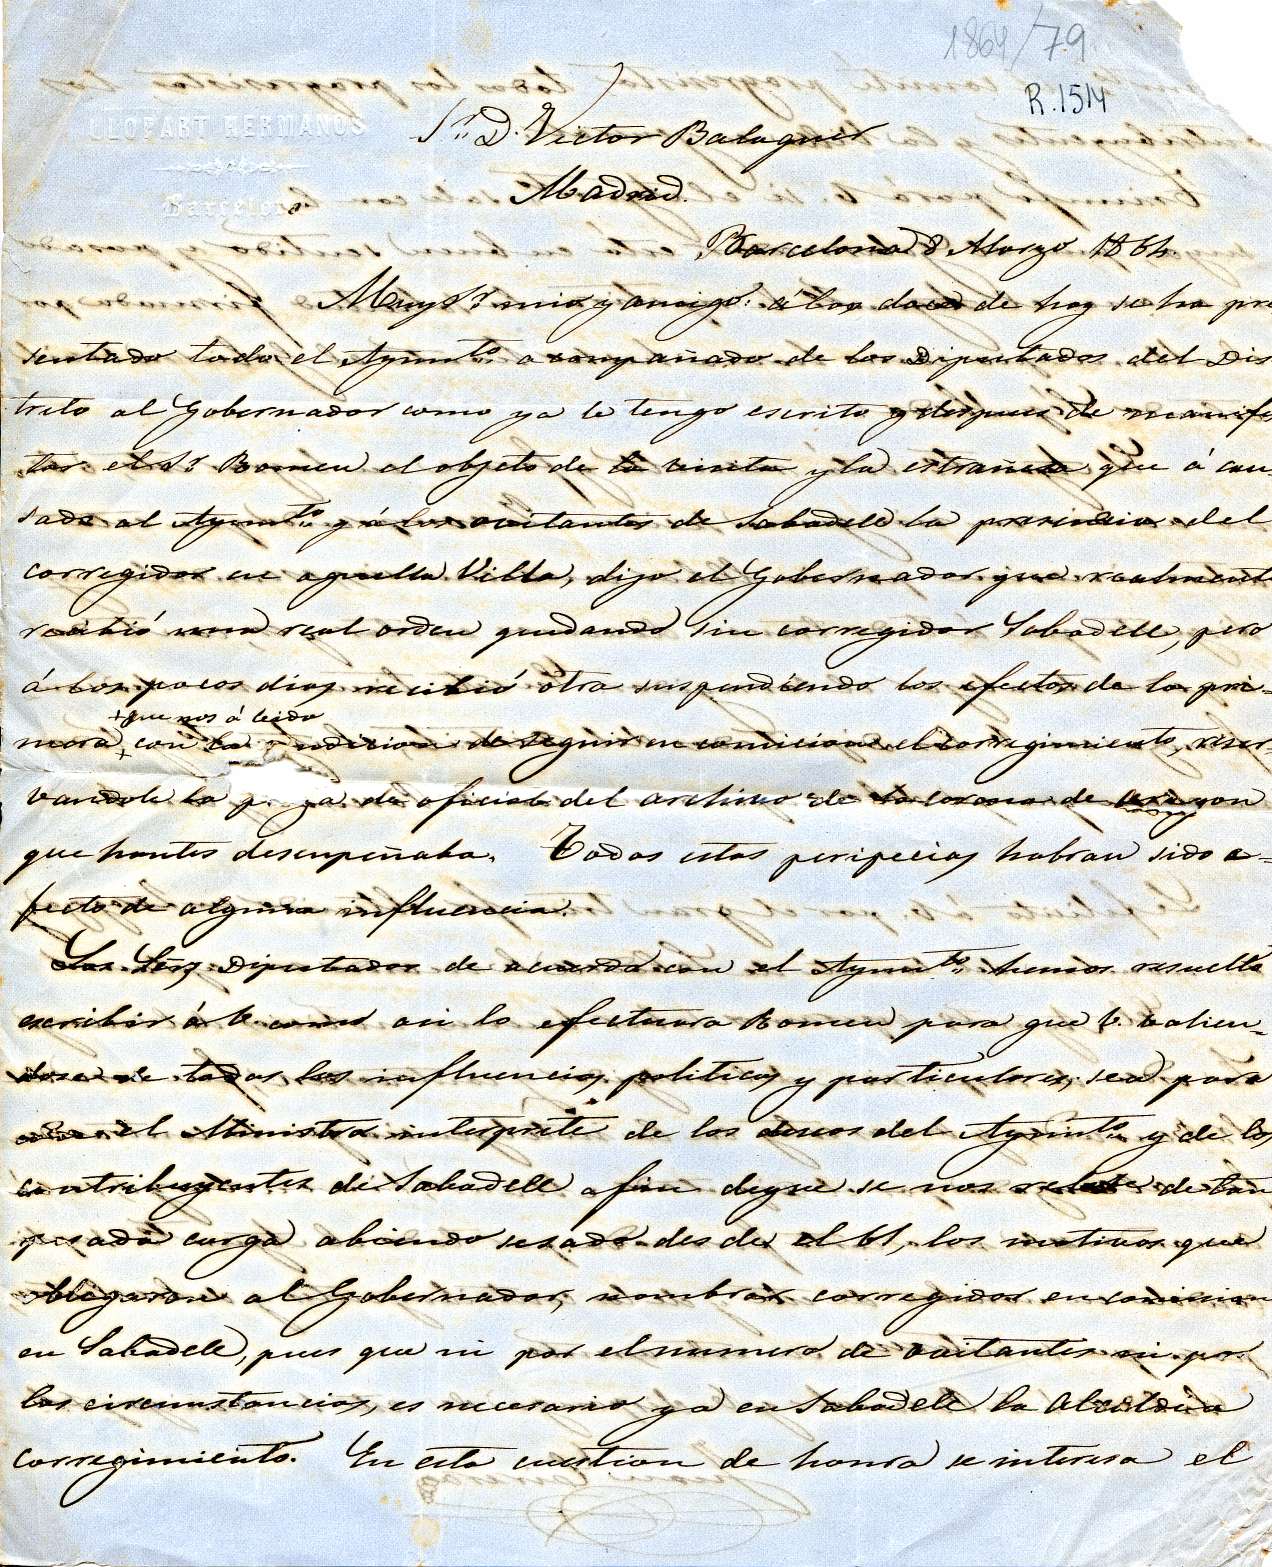 1864/79
R.1514
LLOPART HERMANOS
Barcelona
Sr. D. Victor Balaguer
Madrid.
Barcelona 8 Marzo 1864
Muy Sr. mio y amigo: á las doce de hoy se ha pre
sentado todo el Ayunto. acompañado de los Diputados del Dis
trito al Gobernador como ya le tengo escrito y despues de manifes
tar el Sr. Romeu el objeto de la visita y la estrañeza que á cau-
sado al Ayunto. y á los avitantes de Sabadell la presencia del
corregidor en aquella Villa, dijo el Gobernador que realmente
recibió una real orden quedando sin corregidor Sabadell, pero
á los pocos dias recibió otra suspendiendo los efectos de la pri-
+ que nos á leido
mera + con la condicion de seguir en comicion el corregimiento, reser-
vandole la plaza de oficial del archivo de la corona de aragon
que hantes desenpeñaba. Todas estas peripecias habran sido e-
fecto de alguna influencia.
Los Sres. Diputados de acuerdo con el Ayunto. hemos resuelto
escribir á V. como asi lo efectuara Romeu para que V. valien-
dose de todas las influencias politicas y particulares, sea para
el Ministro interprete de los deseos del Ayunto. y de los
contribuyentes de Sabadell afin deque se nos de tan
pesada carga abiendo sesado desde el 61, los motivos que
obligaron al Gobernador, nombrar corregidor en comision
en Sabadell, pues que ni por el numero de avitantes ni por
las circunstancias, es necesario ya en Sabadell la Alcaldia
corregimiento. En esta cuestion de honra se interesa el